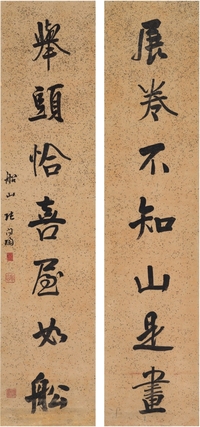 展卷不知山是畫
舉頭恰喜屋如船
船山張問陶